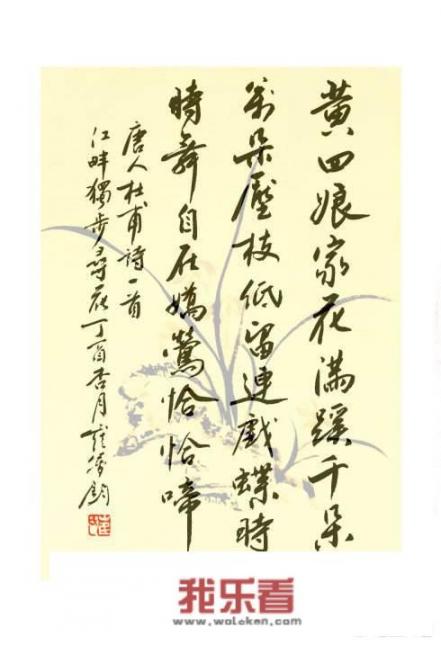 黄四娘家花满蹊千朵
萬朵壓枝低留連戲蝶時
時舞自在嬌鶯恰恰啼
唐人杜甫詩一首
江畔獨步尋花丁酉杏月
我乐看
www.woleken.com